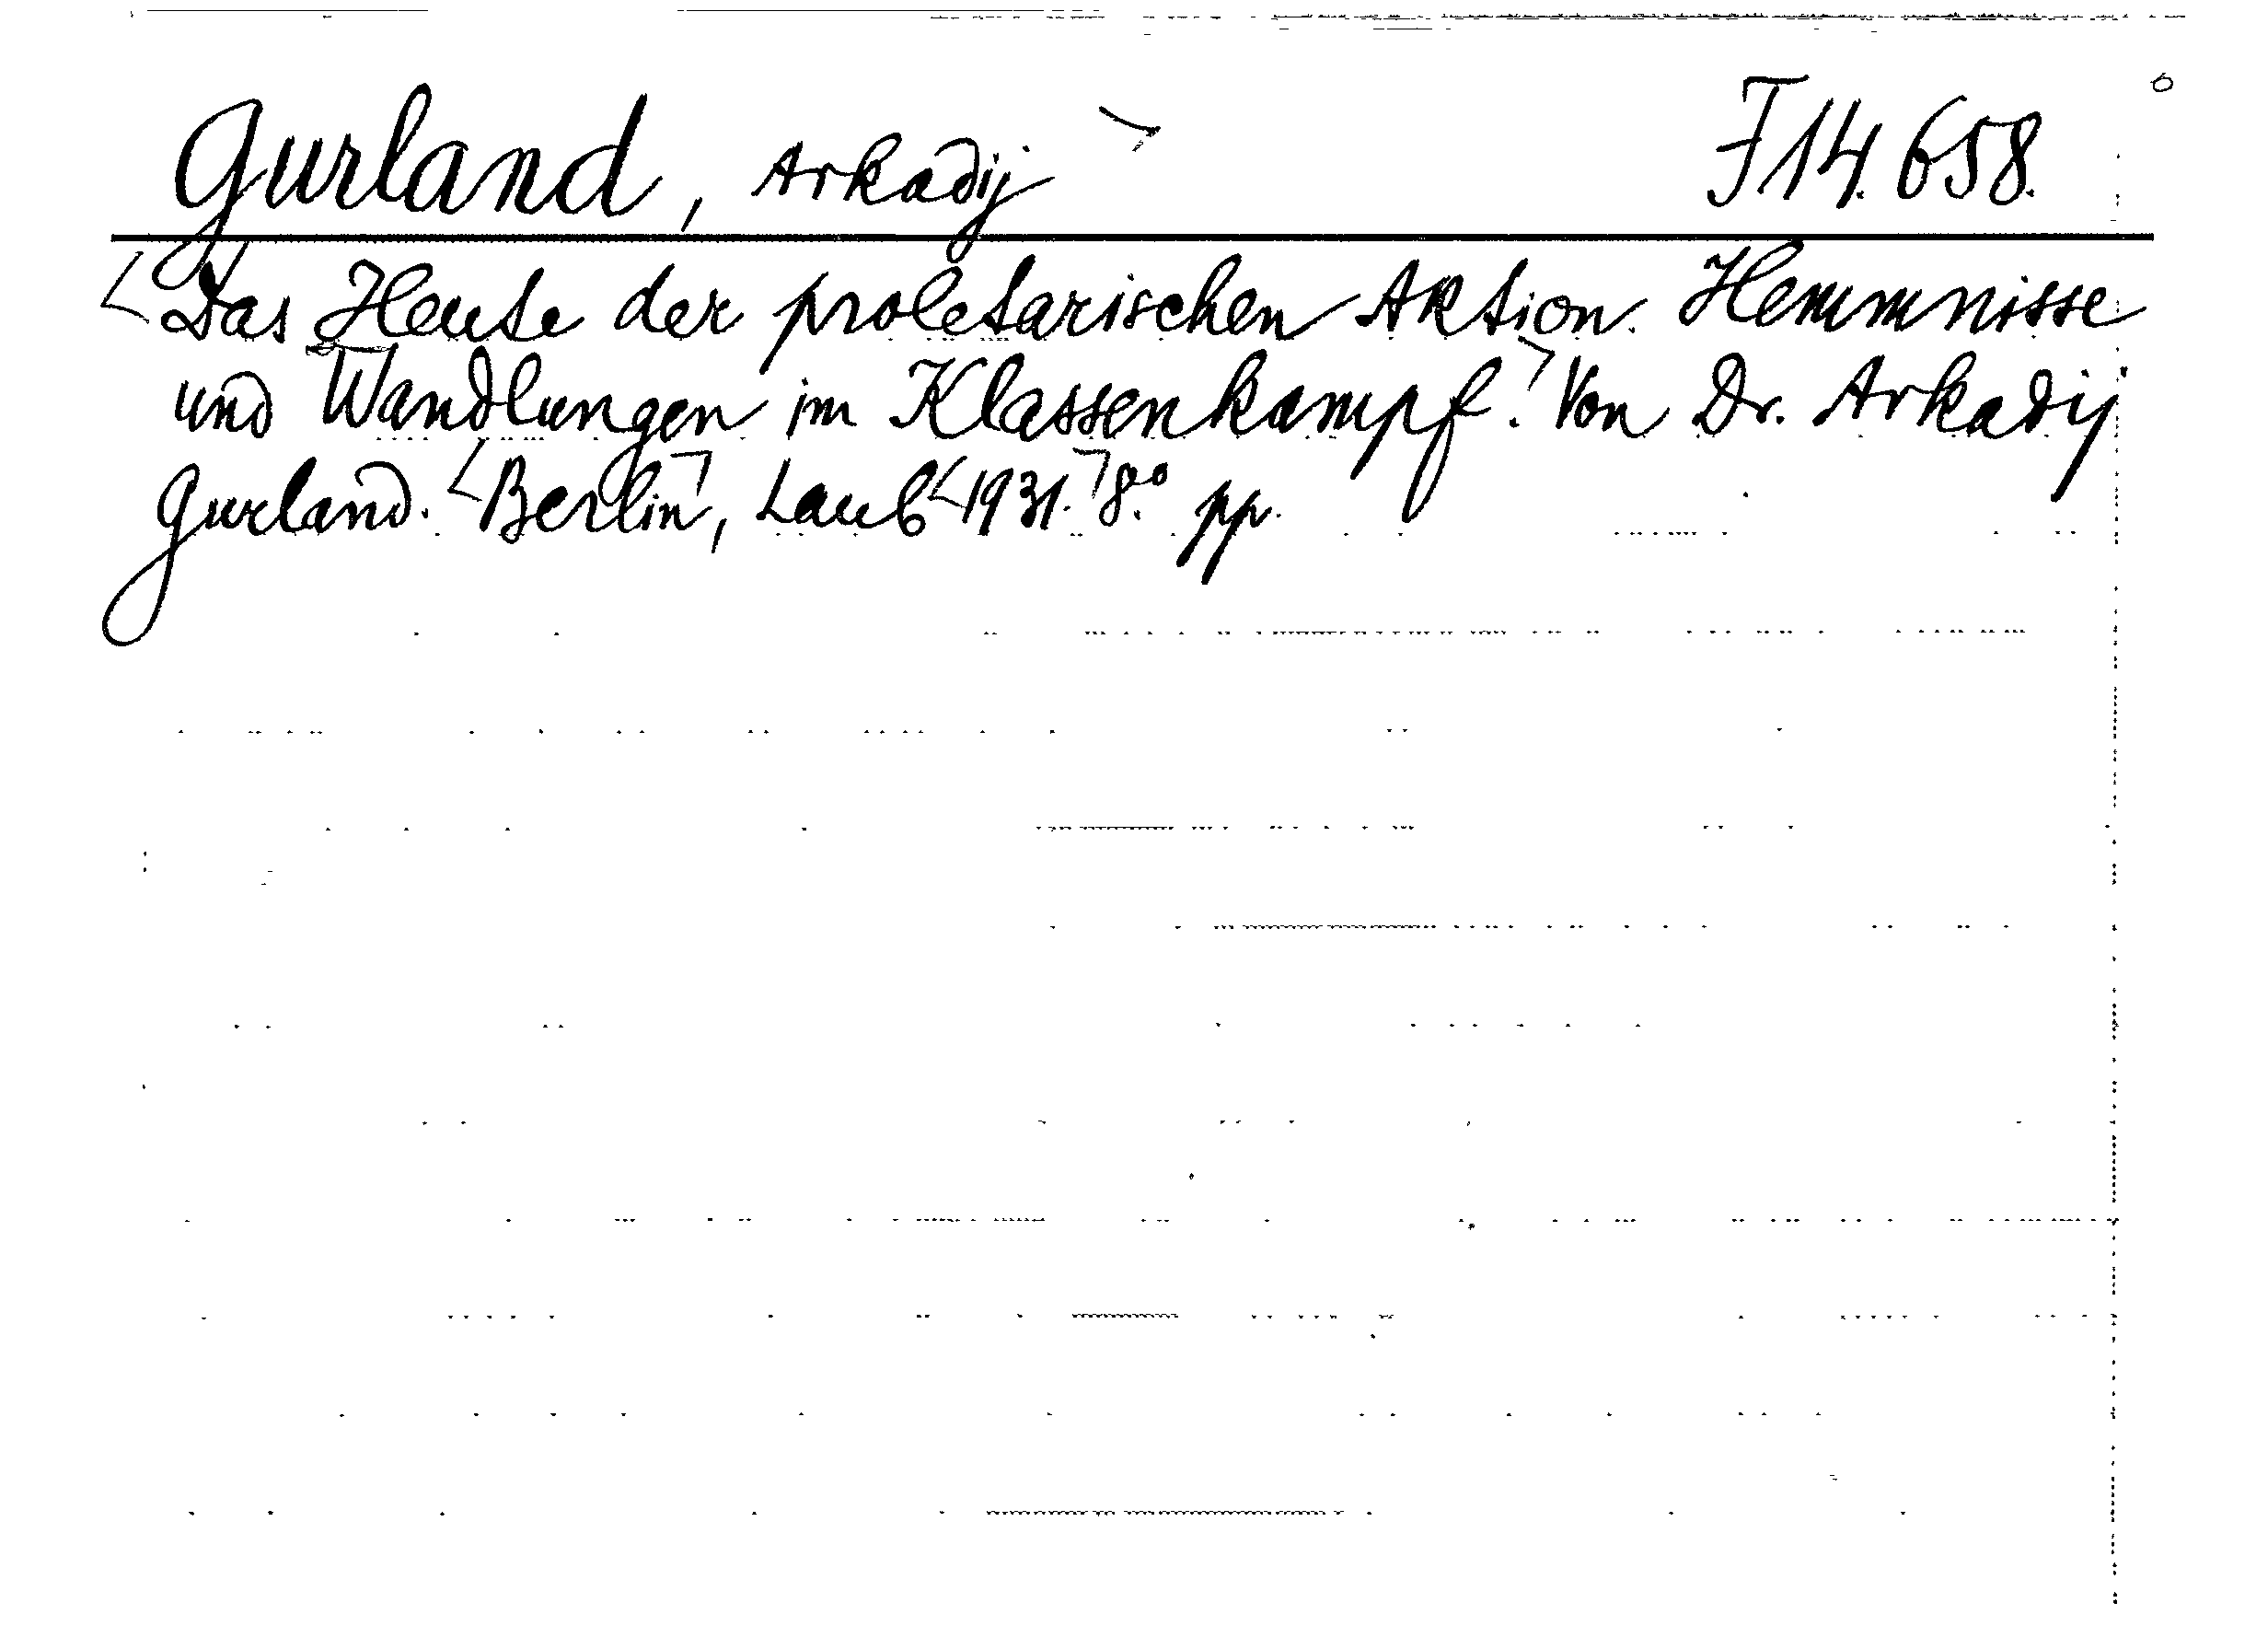 Gurland, Arkadij J 14.658.
Das Heute der proletarischen Aktion. Hemmnisse
und Wandlungen im Klassenkampf. Von Dr. Arkadij
Gurland. Berlin, Laub 1931. 8.° pp.